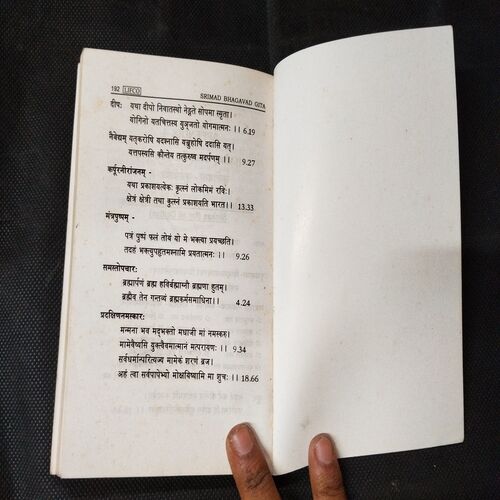 192 LIFCO SRIMAD BHAGAVAD GITA
दीपः यथा दीपो निवातस्थो नेङ्गते सोपमा स्मृता।
योगिनो यतचित्तस्य युञ्जतो योगमात्मनः।। 6.19
नैवेद्यम् यत्करोषि यदश्नासि यज्जुहोषि ददासि यत्।
यत्तपस्यसि कौन्तेय तत्कुरुष्व मदर्पणम् ।। 9.27
कर्पूरनीरांजनम् -
यथा प्रकाशयत्येकः कृत्स्नं लोकमिमं रविः।
क्षेत्रं क्षेत्री तथा कृत्स्नं प्रकाशयति भारत।। 13.33
मंत्रपुष्पम् -
पत्रं पुष्पं फलं तोयं यो मे भक्त्या प्रयच्छति।
तदहं भक्त्युपहृतमश्नामि प्रयतात्मनः।। 9.26
समस्तोपचारः
ब्रह्मार्पणं ब्रह्म हविर्ब्रह्माग्नौ ब्रह्मणा हुतम्।
ब्रह्मैव तेन गन्तव्यं ब्रह्मकर्मसमाधिना।। 4.24
प्रदक्षिणनमस्कारः
मन्मना भव मद्भक्तो मद्याजी मां नमस्कुरु।
मामेवैष्यसि युक्त्वैवमात्मानं मत्परायणः ।। 9.34
सर्वधर्मान्परित्यज्य मामेकं शरणं व्रज।
अहं त्वा सर्वपापेभ्यो मोक्षयिष्यामि मा शुचः ।। 18.66